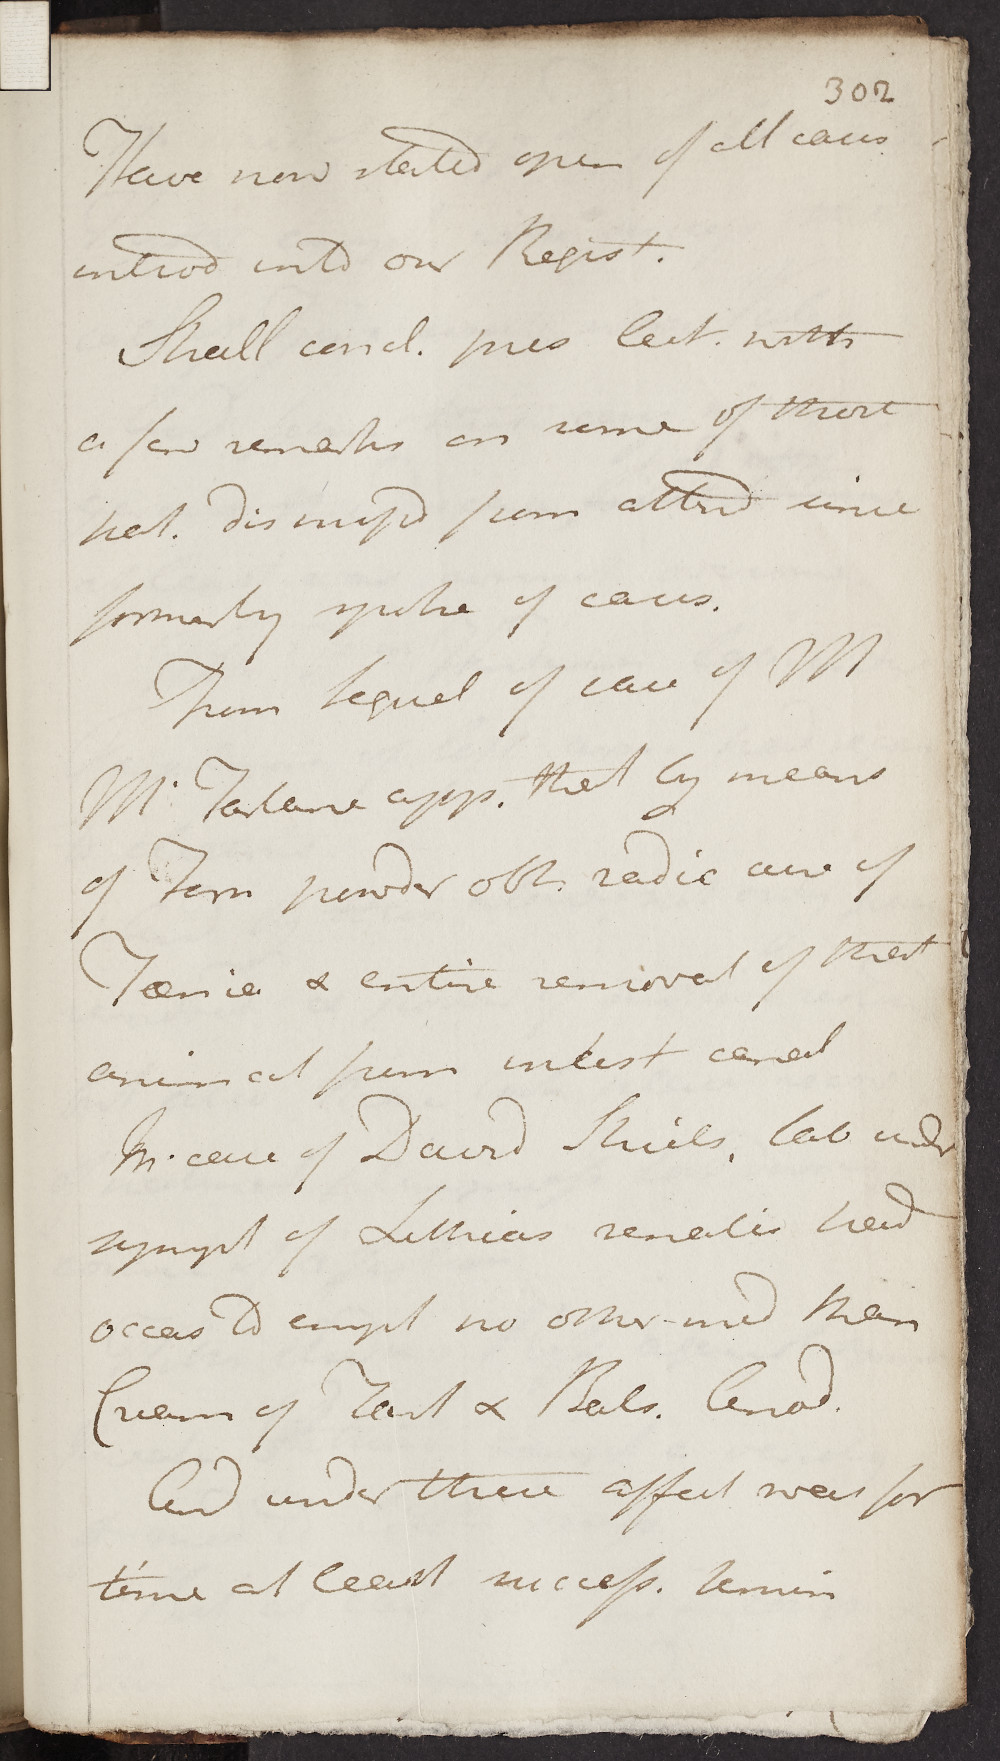 302
Have now stated open of all cases
introd into our Regist.
Shall concl. pres lect. with
a few remarks on some of those
pat. dismissd from attend since
formerly spoke of cases.
From sequel of case of M
Mc Farlane app. that by means
of Fern powder obt. radic cure of
Taenia & entire removal of that
animal from intest canal
In case of David Shiels, lab under
sympt of Lithias renalis had
occas to empl no other med than
Cream of Tart & Bals. Canad.
And under these affect was for
time at least success. termin